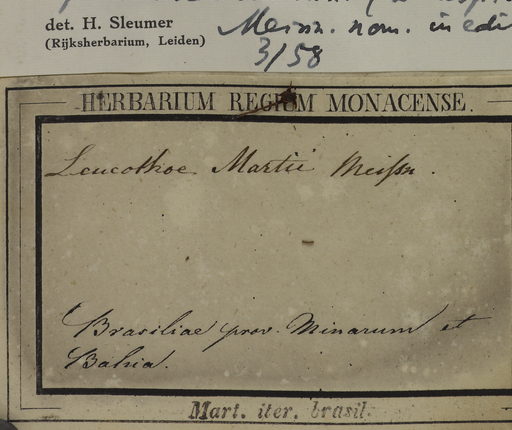 det. H. Sleumer
(Rijksherbarium, Leiden)
Meissn. nom. in edi
3/58
HERBARIUM REGIUM MONACENSE.
Leucothoe Martii Meissn.
Brasiliae prov. Minarum et
Bahia.
Mart. iter. brasil.